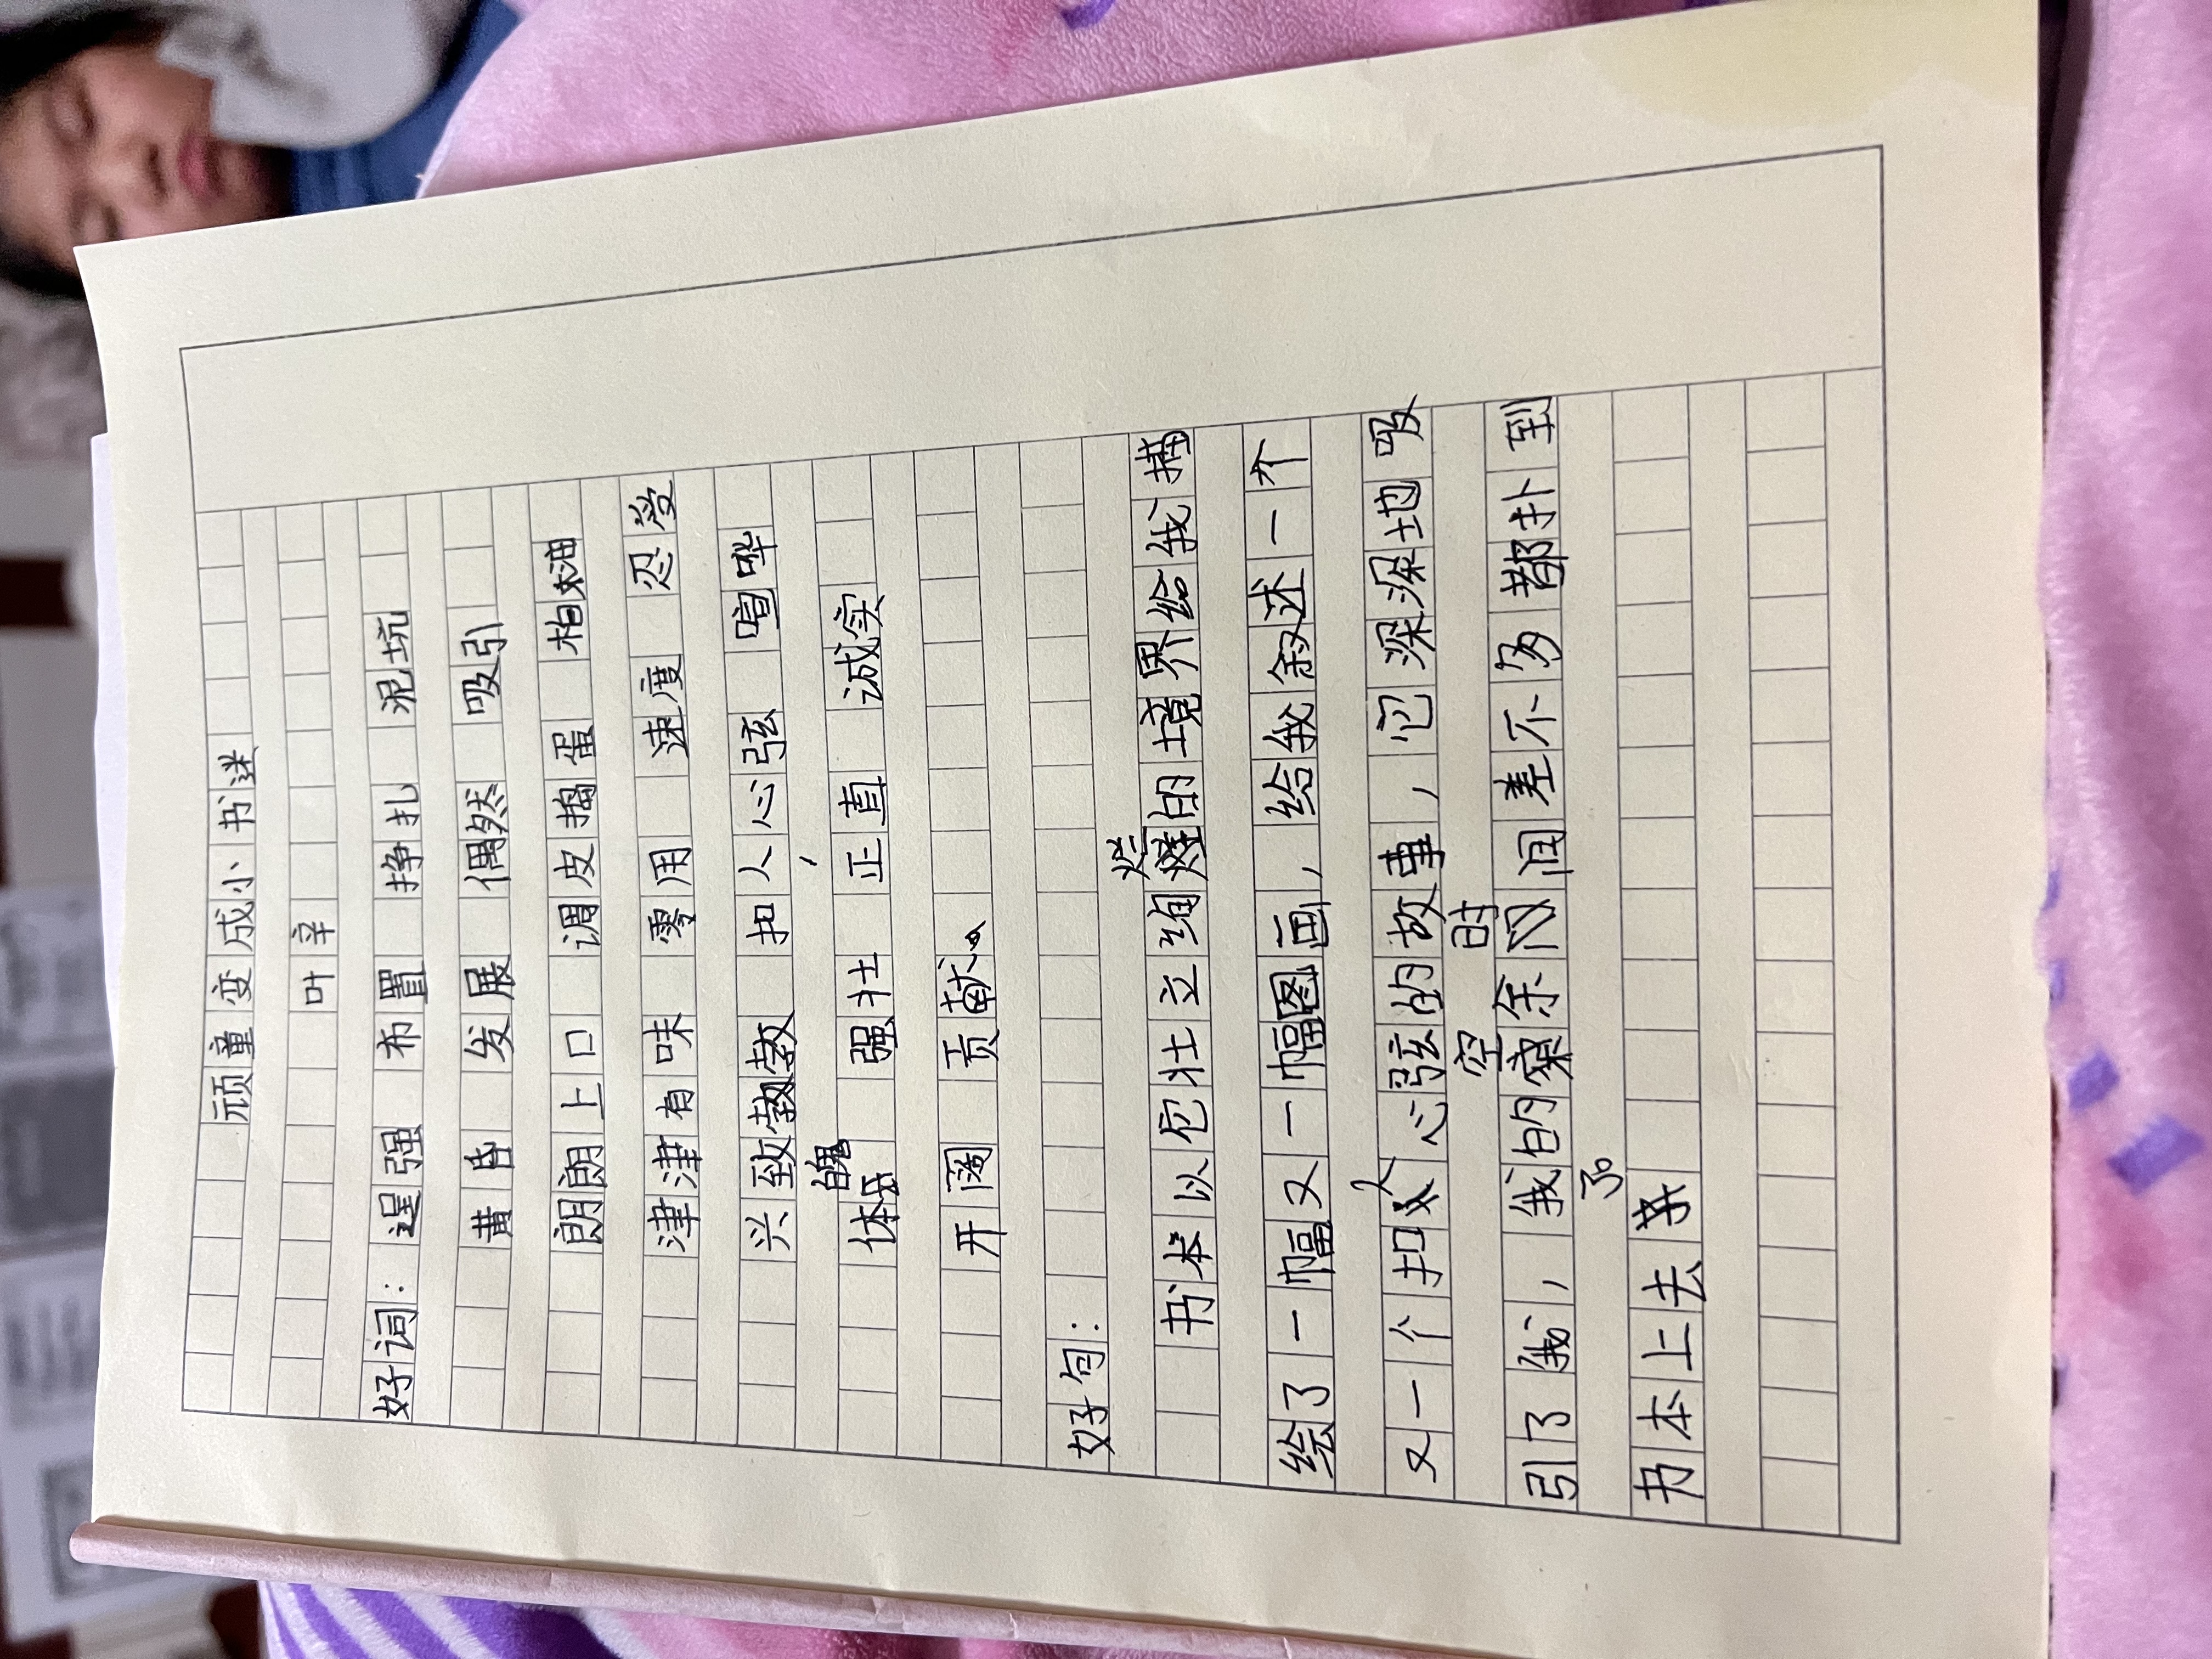 顽童变成小书迷
叶辛
好词：逞强 布置 挣扎 泥坑
黄昏 发展 偶然 吸引
朗朗上口 调皮捣蛋 柏油
津津有味 零用 速度 忍受
兴致勃勃 扣人心弦 喧哗
体魄 强壮 正直 诚实
开阔 贡献
好句：
书本以它壮立绚烂的境界给我描
绘了一幅又一幅图画，给我叙述一个
又一个扣人心弦的故事，它深深地吸
引了我，我的空余时间差不多都扑到
书本上去了